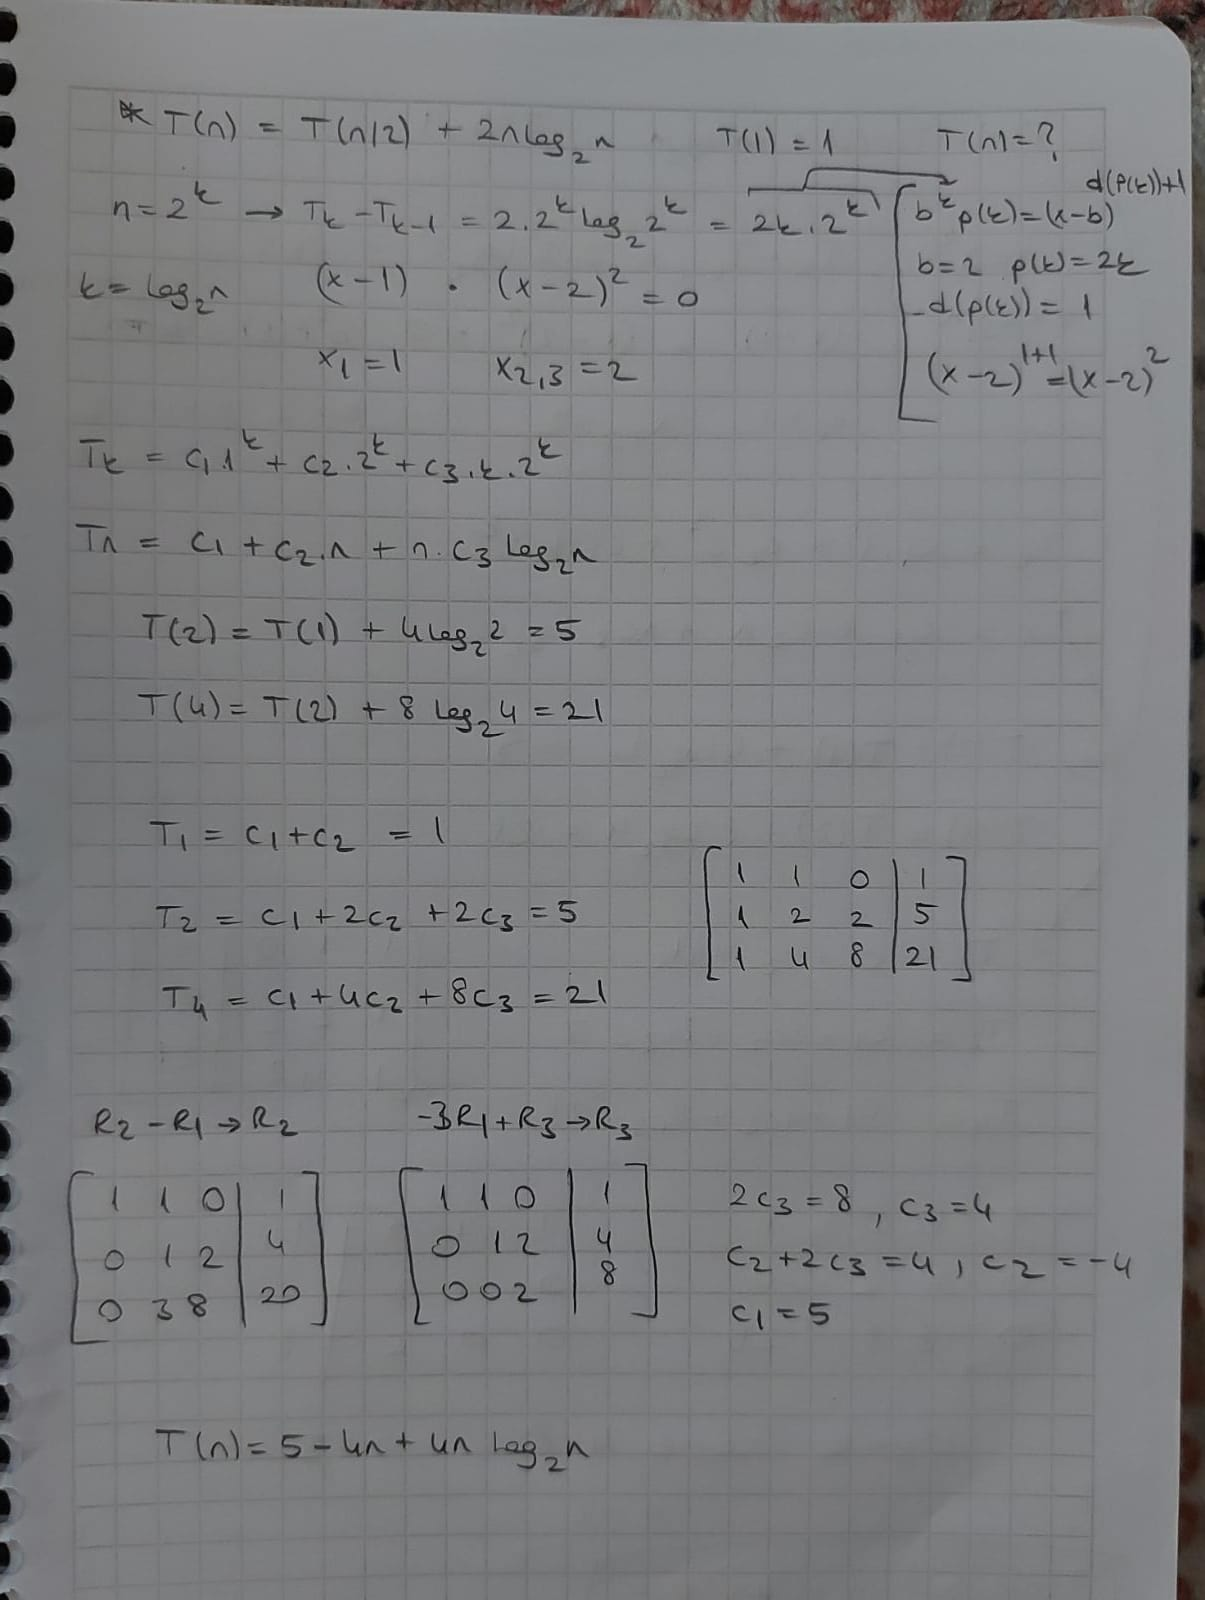 * T(n) = T(n/2) + 2nlog₂n T(1) = 1 T(n)=?
n=2ᵏ → Tₖ - Tₖ₋₁ = 2.2ᵏ log₂2ᵏ = 2k.2ᵏ
bᵏ p(k)=(x-b)^(d(p(k))+1)
b=2 p(k)=2k
d(p(k)) = 1
(x-2)¹⁺¹=(x-2)²
k=log₂n (x-1) . (x-2)² = 0
x₁=1 x₂,₃=2
Tₖ = c₁.1ᵏ + c₂.2ᵏ + c₃.k.2ᵏ
Tn = c₁ + c₂.n + n.c₃ log₂n
T(2) = T(1) + 4log₂2 = 5
T(4) = T(2) + 8 log₂4 = 21
T₁ = c₁+c₂ = 1
T₂ = c₁+2c₂ +2c₃ = 5
T₄ = c₁+4c₂ + 8c₃ = 21
[ 1 1 0 | 1
1 2 2 | 5
1 4 8 | 21 ]
R₂ - R₁ → R₂ -3R₁+R₃→R₃
[ 1 1 0 | 1
0 1 2 | 4
0 3 8 | 20 ]
[ 1 1 0 | 1
0 1 2 | 4
0 0 2 | 8 ]
2c₃ = 8, c₃=4
c₂+2c₃=4, c₂ = -4
c₁ = 5
T(n) = 5-4n+4n log₂n